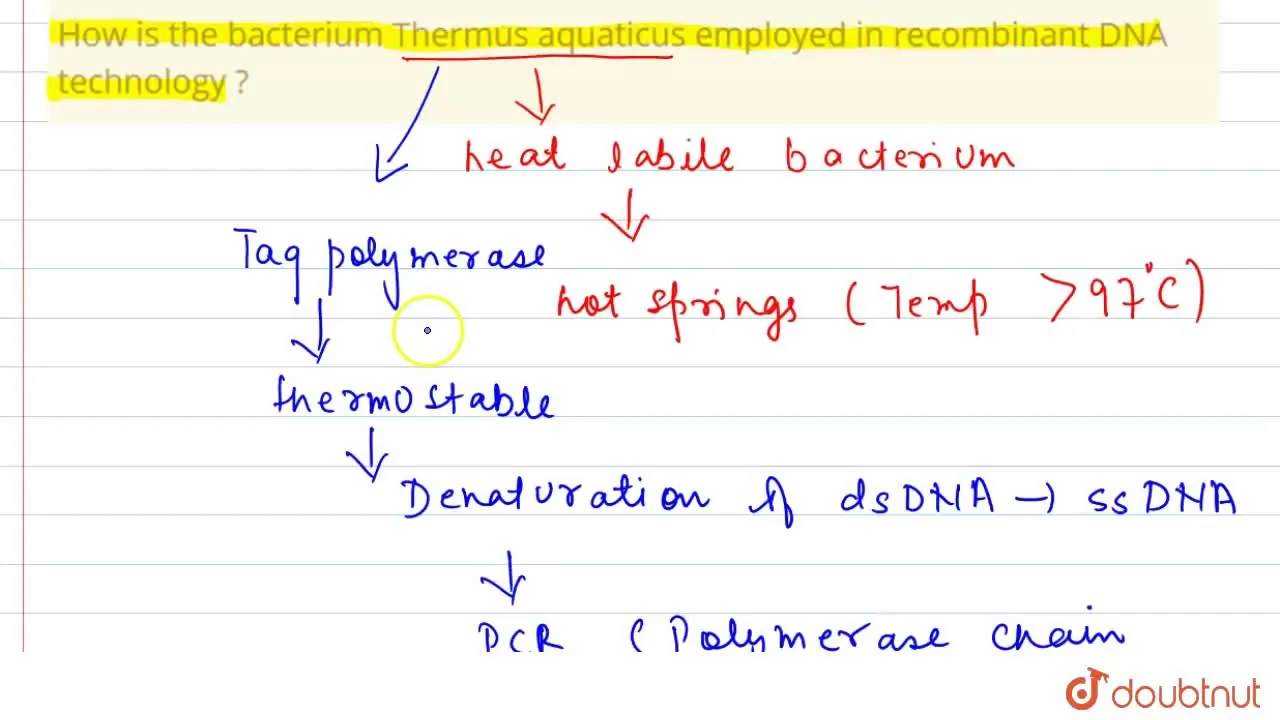 How is the bacterium Thermus aquaticus employed in recombinant DNA
technology ?
heat labile bacterium
Taq polymerase
hot springs (Temp > 97°C)
thermostable
Denaturation of dsDNA → ssDNA
PCR (Polymerase chain
doubtnut